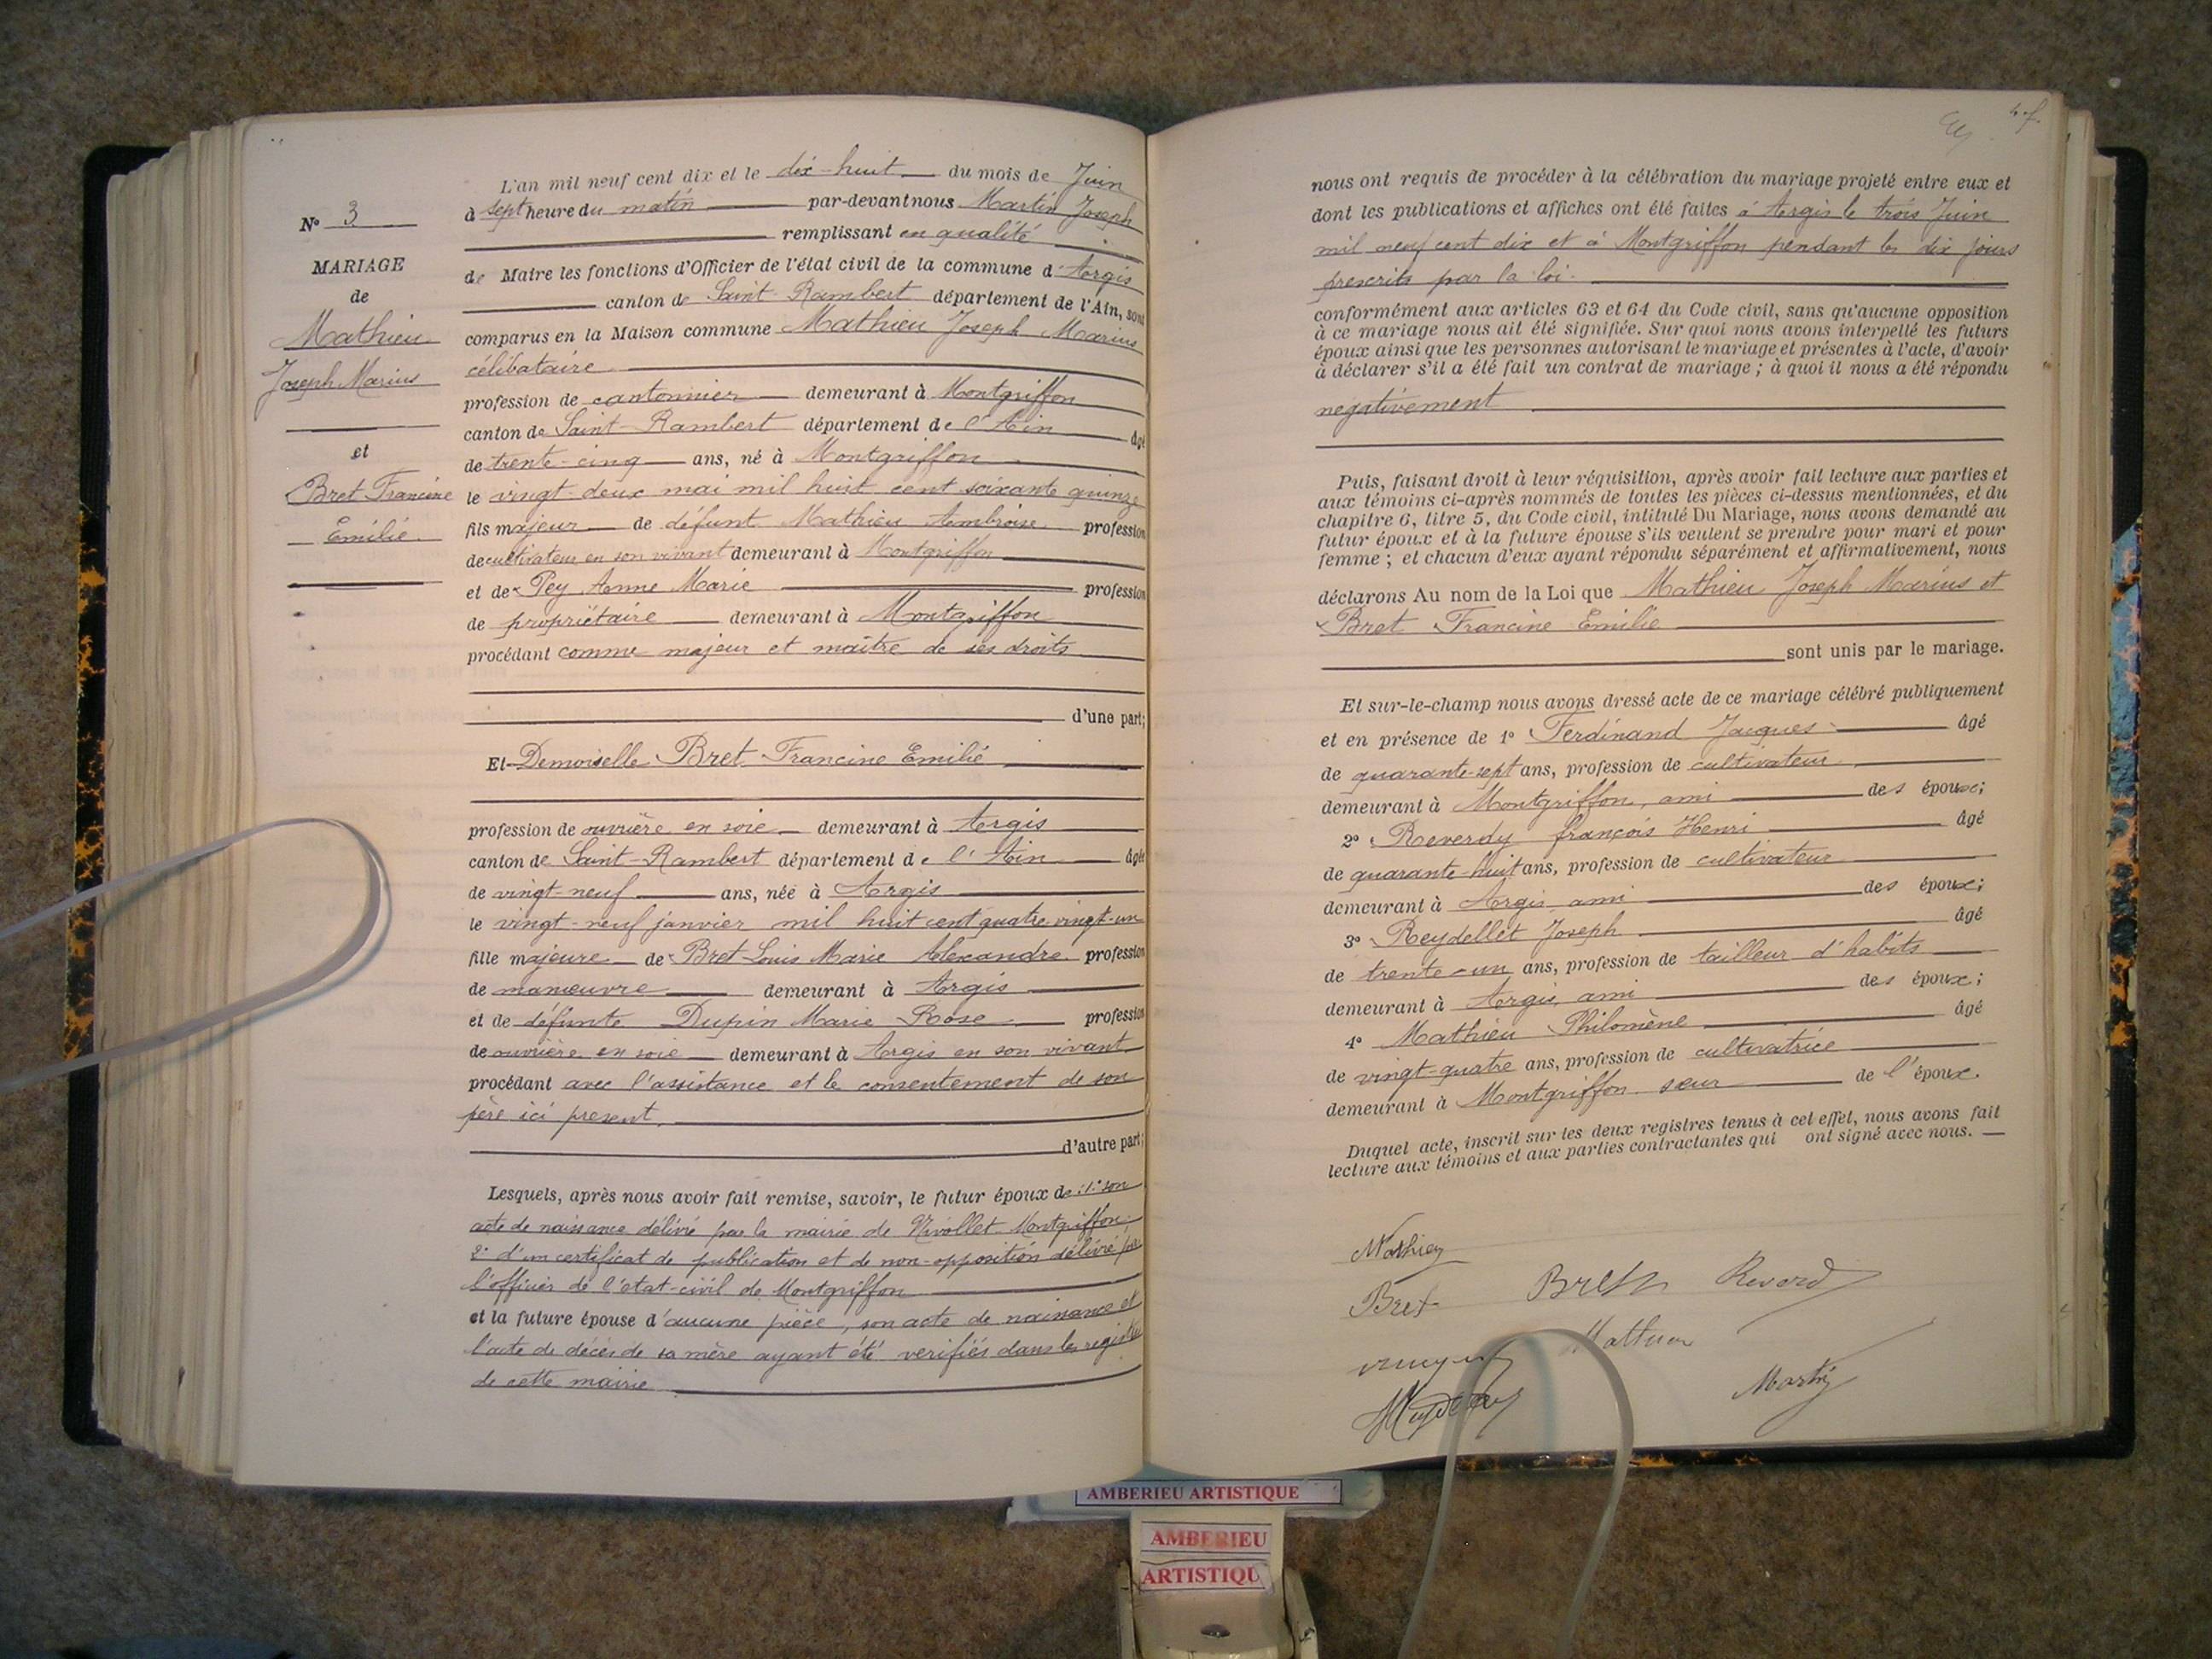 N° 3
MARIAGE
de
Mathieu
Joseph Marius
et
Bret Francine
Emilie
L'an mil neuf cent dix et le dix-huit du mois de Juin
à sept heure du matin par-devant nous Martin Joseph
remplissant en qualité
de Maire les fonctions d'Officier de l'état civil de la commune d'Argis
canton de Saint-Rambert département de l'Ain, sont
comparus en la Maison commune Mathieu Joseph Marius
célibataire
profession de cantonnier demeurant à Montgriffon
canton de Saint-Rambert département de l'Ain âgé
de trente-cinq ans, né à Montgriffon
le vingt-deux mai mil huit cent soixante quinze
fils majeur de défunt Mathieu Ambroise profession
de cultivateur en son vivant demeurant à Montgriffon
et de Pey Anne Marie profession
de propriétaire demeurant à Montgriffon
procédant comme majeur et maître de ses droits
d'une part;
Et Demoiselle Bret Francine Emilie
profession de ouvrière en soie demeurant à Argis
canton de Saint-Rambert département de l'Ain âgée
de vingt-neuf ans, née à Argis
le vingt-neuf janvier mil huit cent quatre vingt-un
fille majeure de Bret Louis Marie Alexandre profession
de manœuvre demeurant à Argis
et de défunte Dupin Marie Rose profession
de ouvrière en soie demeurant à Argis en son vivant
procédant avec l'assistance et le consentement de son
père ici present.
d'autre part;
Lesquels, après nous avoir fait remise, savoir, le futur époux de : 1° son
acte de naissance délivré par la mairie de Nivollet-Montgriffon
2° d'un certificat de publication et de non-opposition délivré par
l'officier de l'état-civil de Montgriffon
et la future épouse d'aucune pièce, son acte de naissance et
l'acte de décès de sa mère ayant été verifiés dans les registres
de cette mairie
nous ont requis de procéder à la célébration du mariage projeté entre eux et
dont les publications et affiches ont été faites à Argis le trois Juin
mil neuf cent dix et à Montgriffon pendant les dix jours
prescrits par la loi.
conformément aux articles 63 et 64 du Code civil, sans qu'aucune opposition
à ce mariage nous ait été signifiée. Sur quoi nous avons interpellé les futurs
époux ainsi que les personnes autorisant le mariage et présentes à l'acte, d'avoir
à déclarer s'il a été fait un contrat de mariage ; à quoi il nous a été répondu
negativement
Puis, faisant droit à leur réquisition, après avoir fait lecture aux parties et
aux témoins ci-après nommés de toutes les pièces ci-dessus mentionnées, et du
chapitre 6, titre 5, du Code civil, intitulé Du Mariage, nous avons demandé au
futur époux et à la future épouse s'ils veulent se prendre pour mari et pour
femme ; et chacun d'eux ayant répondu séparément et affirmativement, nous
déclarons Au nom de la Loi que Mathieu Joseph Marius et
Bret Francine Emilie
sont unis par le mariage.
Et sur-le-champ nous avons dressé acte de ce mariage célébré publiquement
et en présence de 1° Ferdinand Jacques âgé
de quarante-sept ans, profession de cultivateur
demeurant à Montgriffon, ami des époux;
2° Reverdy françois Henri âgé
de quarante-huit ans, profession de cultivateur
demeurant à Argis ami des époux;
3° Reydellet Joseph âgé
de trente-un ans, profession de tailleur d'habits
demeurant à Argis, ami des époux;
4° Mathieu Philomène âgé
de vingt-quatre ans, profession de cultivatrice
demeurant à Montgriffon sœur de l'époux.
Duquel acte, inscrit sur les deux registres tenus à cet effet, nous avons fait
lecture aux témoins et aux parties contractantes qui ont signé avec nous.
Mathieu
Bret Bret Reverdy
Mathieu
Martin
AMBERIEU ARTISTIQUE
AMBERIEU
ARTISTIQU